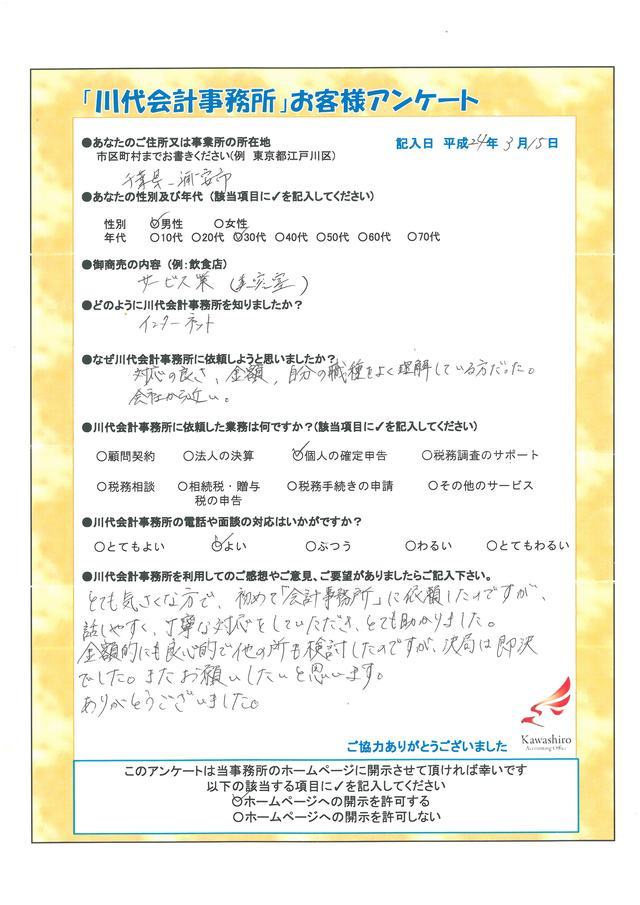 「川代会計事務所」お客様アンケート
●あなたのご住所又は事業所の所在地
記入日 平成24年3月15日
市区町村までお書きください(例 東京都江戸川区)
千葉県 浦安市
●あなたの性別及び年代（該当項目に✓を記入してください）
性別 ○✓男性 ○女性
年代 ○10代 ○20代 ○✓30代 ○40代 ○50代 ○60代 ○70代
●御商売の内容（例：飲食店）
サービス業（美容室）
●どのように川代会計事務所を知りましたか？
インターネット
●なぜ川代会計事務所に依頼しようと思いましたか？
対応の良さ、金額、自分の職種をよく理解している方だった。
会社から近い。
●川代会計事務所に依頼した業務は何ですか？(該当項目に✓を記入してください)
○顧問契約 ○法人の決算 ○✓個人の確定申告 ○税務調査のサポート
○税務相談 ○相続税・贈与税の申告 ○税務手続きの申請 ○その他のサービス
●川代会計事務所の電話や面談の対応はいかがですか？
○とてもよい ○✓よい ○ぶつう ○わるい ○とてもわるい
●川代会計事務所を利用してのご感想やご意見、ご要望がありましたらご記入下さい。
とても気さくな方で、初めて「会計事務所」に依頼したのですが、
話しやすく、丁寧な対応をしていただき、とても助かりました。
金額的にも良心的で他の所も検討したのですが、決局は即決
でした。またお願いしたいと思います。
ありがとうございました。
ご協力ありがとうございました
Kawashiro
Accounting Office
このアンケートは当事務所のホームページに開示させて頂ければ幸いです
以下の該当する項目に✓を記入してください
○✓ホームページへの開示を許可する
○ホームページへの開示を許可しない